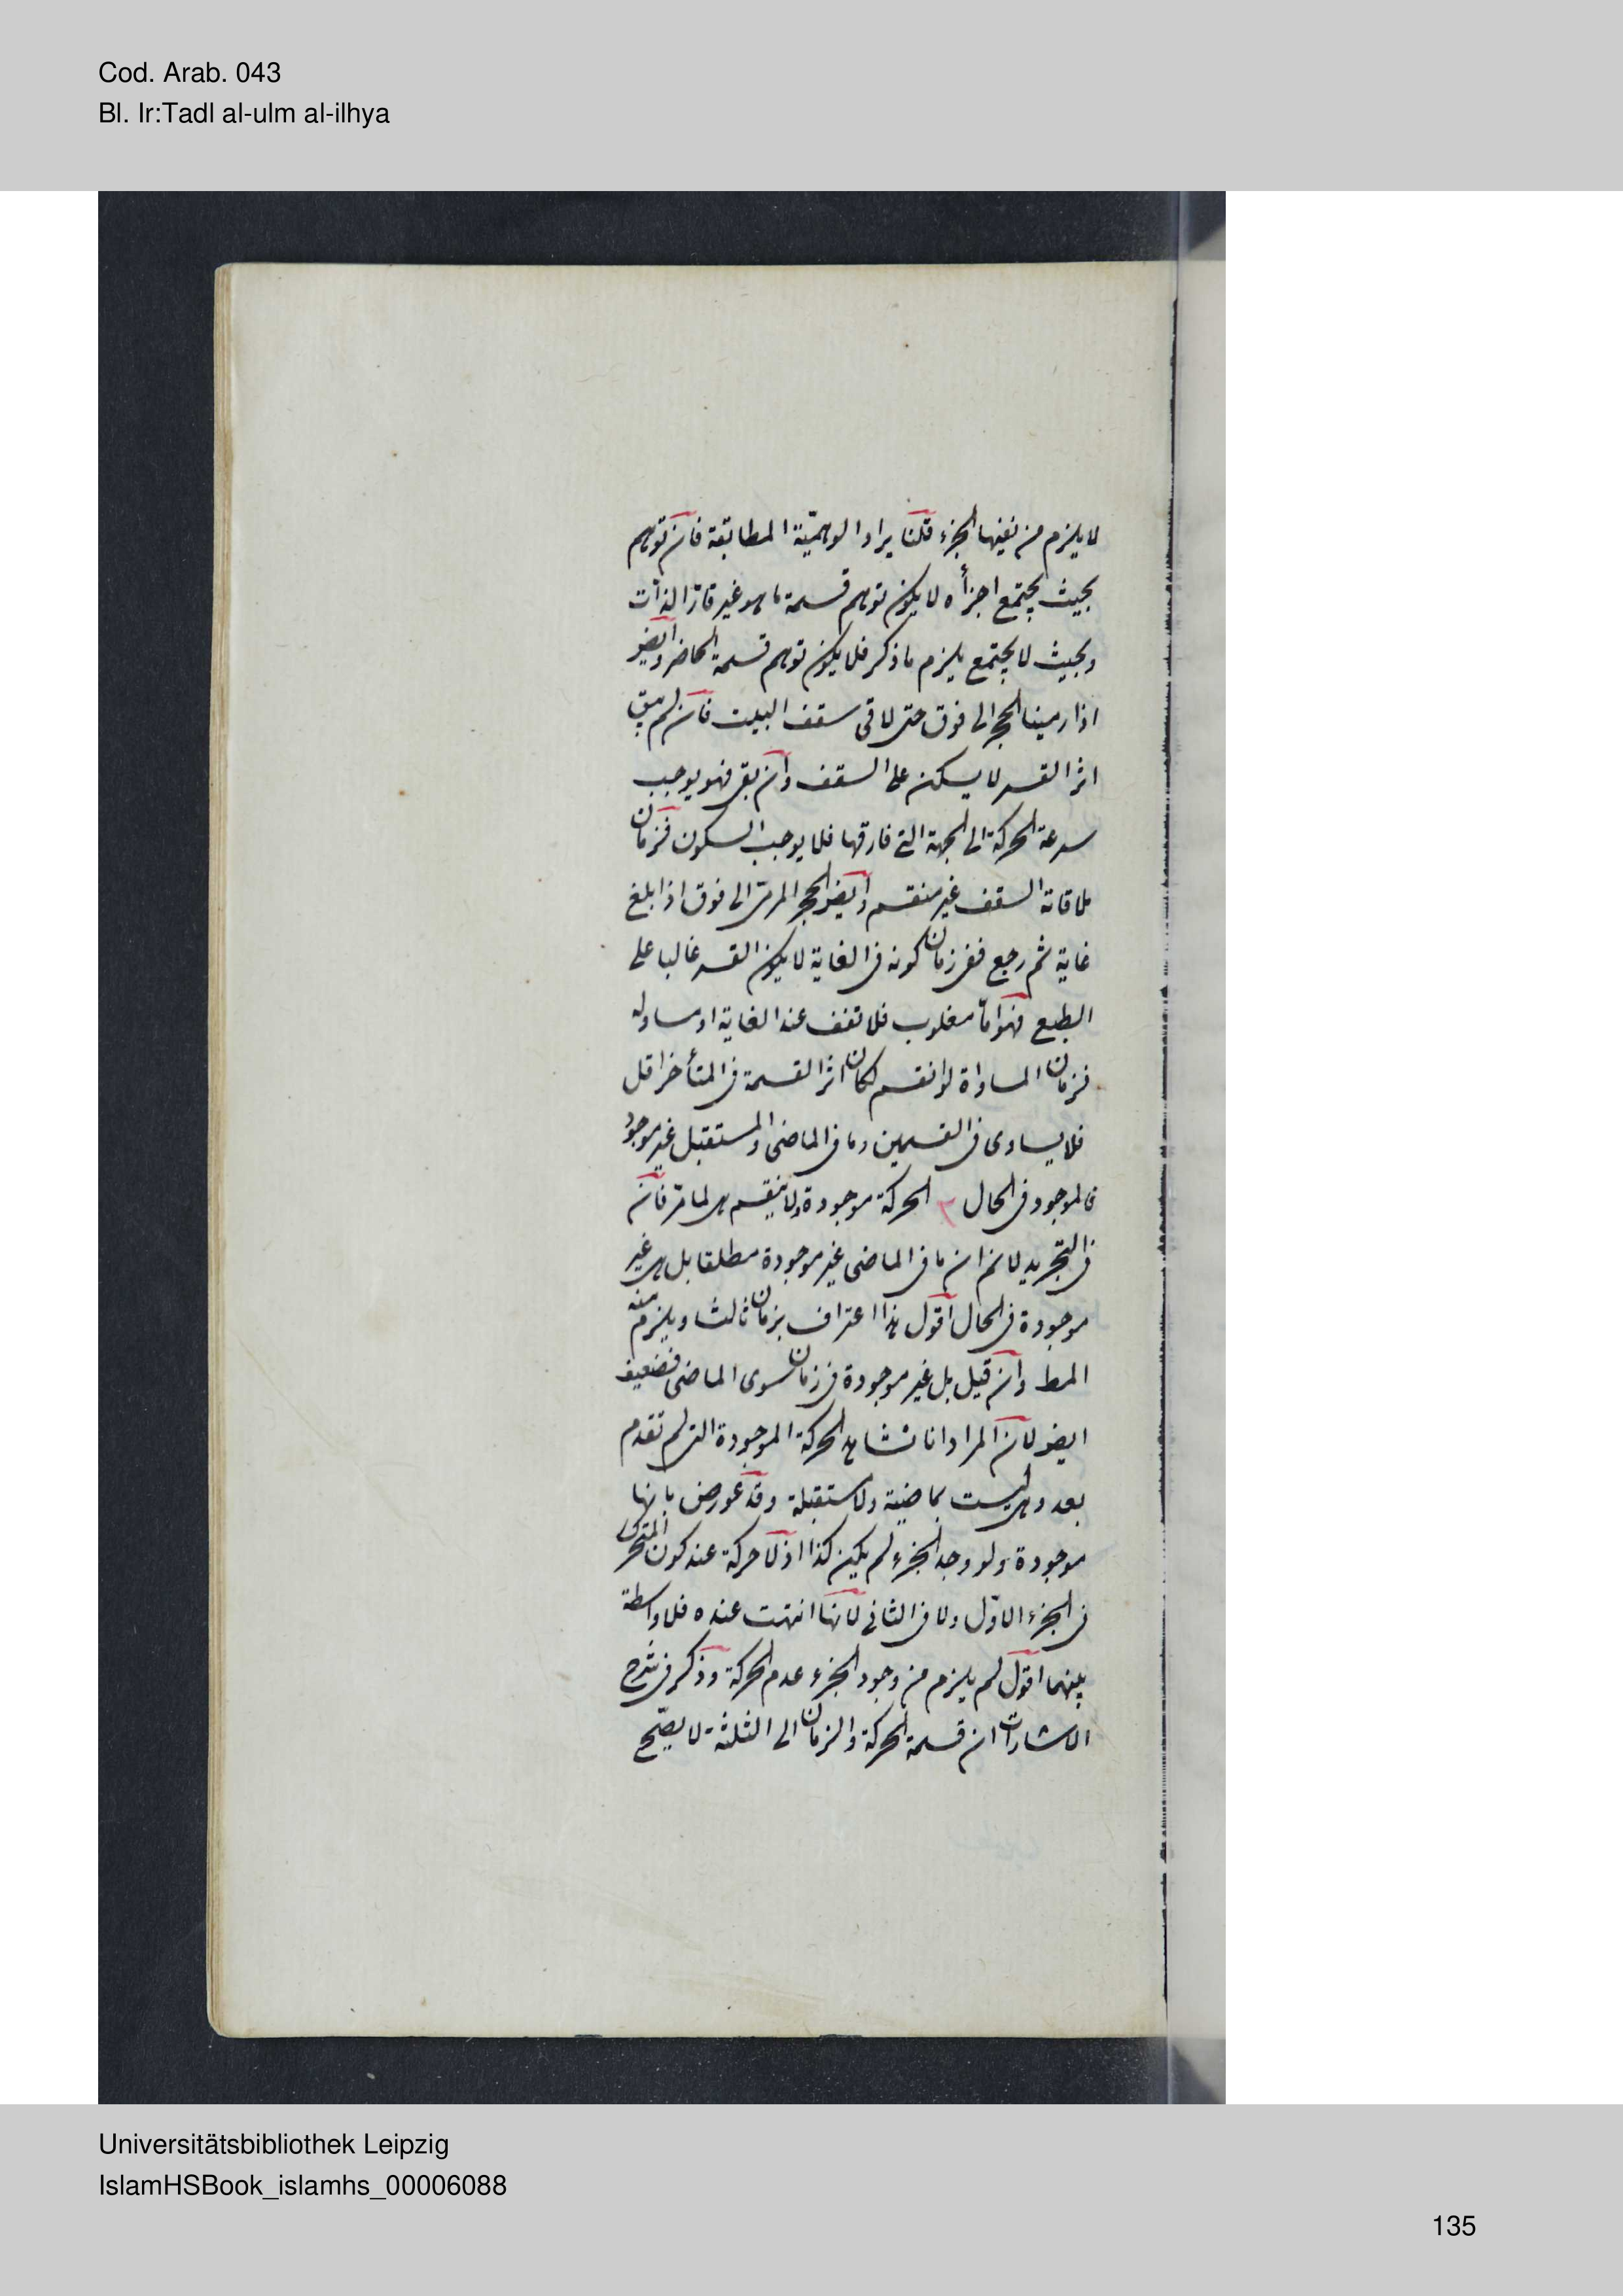 Cod. Arab. 043
Bl. Ir:Tadl al-ulm al-ilhya
لا يلزم من نفيها الجزء قلنا يراد الوهميّة المطابقة فان توهم
بحيث يجتمع اجزأه لا يكون توهم قسمة ما هو غير قارّ الذات
وبحيث لا يجتمع يلزم ما ذكر فلا يكون توهم قسمة الحاضر وايضا
اذا رمينا الحجر الى فوق حتى لاقى سقف البيت فان لم يبق
اثر القسر لا يسكن على السقف وان بقى فهو يوجب
سرعة الحركة الى الجهة التى فارقها فلا يوجب السكون فزمان
ملاقاة السقف غير منقسم وايضا الحجر المرمى الى فوق اذا بلغ
غاية ثم رجع ففى زمان كونه فى الغاية لا يكون القسر غالبا على
الطبع فهو امّا مغلوب فلا تقف عند الغاية او مساو له
فزمان المساواة لو انقسم لكان اثر القسمة فى المتأخر اقل
فلا يساوى فى القسمين وما فى الماضى والمستقبل غير موجود
فالموجود فى الحال ٣ الحركة موجودة ولا ينقسم هى لما مرّ فان
فى التجريد لا نم ان ما فى الماضى غير موجودة مطلقا بل هى غير
موجودة فى الحال اقول هذا اعتراف بزمان ثالث ويلزم منه
المط وان قيل بل غير موجودة فى زمان سوى الماضى فضعيف
ايضا لان المراد انا نشاهد الحركة الموجودة التى لم تقدم
بعد وهى ليست بماضية ولا مستقبلة وقد عورض بانها
موجودة ولو وجد الجزء لم يكن كذا اذ لا حركة عند كون المتحرك
فى الجزء الاوّل ولا فى الثانى لانها انتهت عنده فلا واسطة
بينهما اقول لم يلزم من وجود الجزء عدم الحركة وذكر فى شرح
الاشارات ان قسمة الحركة والزمان الى الثلثة لا يصّح
Universitätsbibliothek Leipzig
IslamHSBook_islamhs_00006088
135